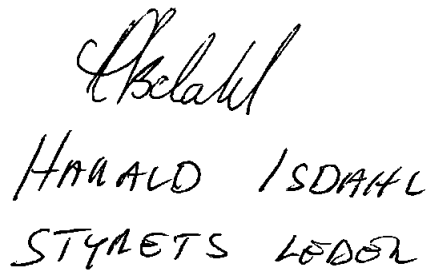 HARALD ISDAHL
STYRETS LEDER